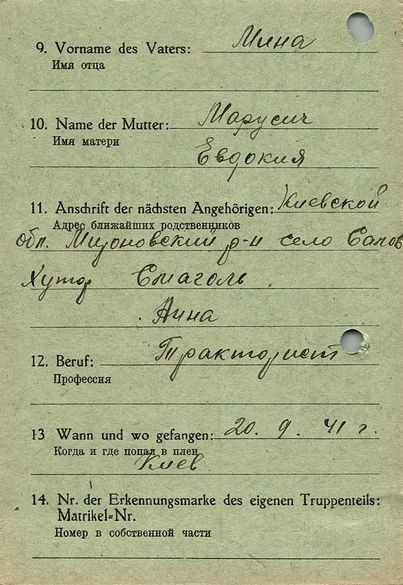 9. Vorname des Vaters: Мина
Имя отца
10. Name der Mutter: Марусич
Имя матери
Евдокия
11. Anschrift der nächsten Angehörigen: Киевской
Адрес ближайших родственников
обл. Мироновский р-н село
Хутор
Анна
12. Beruf: Тракторист
Профессия
13 Wann und wo gefangen: 20. 9. 41 г.
Когда и где попал в плен
Киев
14. Nr. der Erkennungsmarke des eigenen Truppenteils:
Matrikel-Nr.
Номер в собственной части